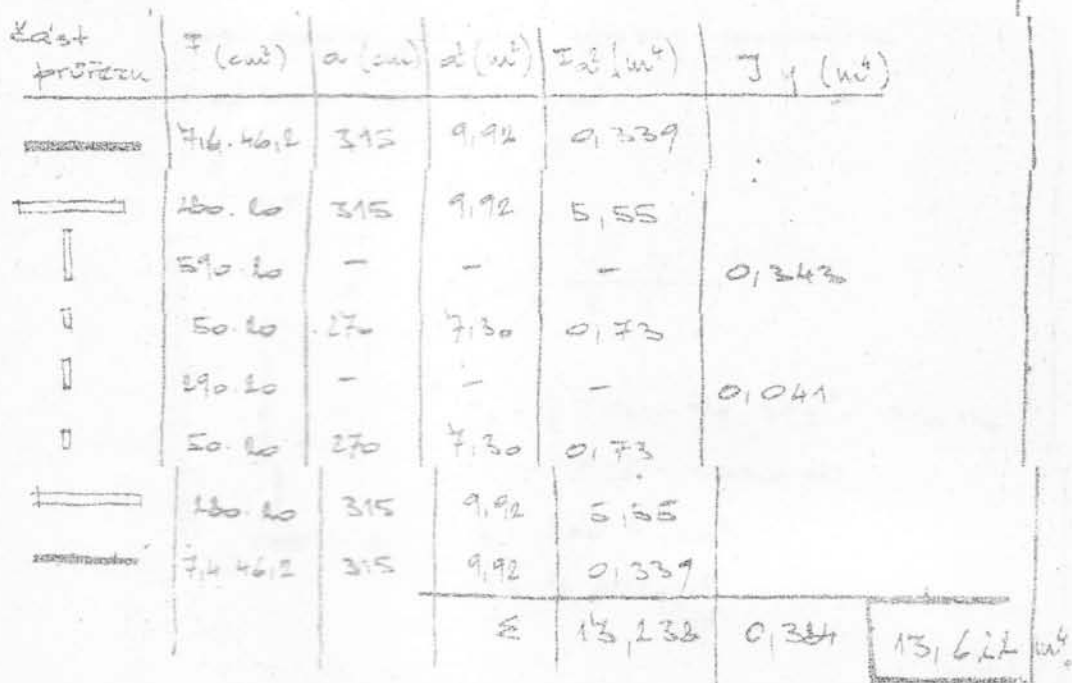 část průřezu F (cm²) a (cm) a² (m²) Fa² (m⁴) J y (m⁴)
7,6.46,2 315 9,92 0,339
280.20 315 9,92 5,55
590.20 - - - 0,343
50.20 270 7,30 0,73
290.20 - - - 0,041
50.20 270 7,30 0,73
280.20 315 9,92 5,55
7,4 46,2 315 9,92 0,339
Σ 13,238 0,384 13,622 m⁴